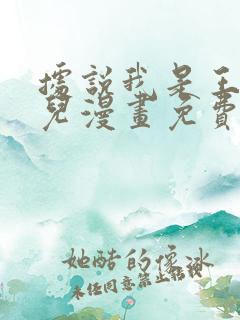 據說我是王
兒漫畫免費
她酷的像冰
未任同意禁止轉載